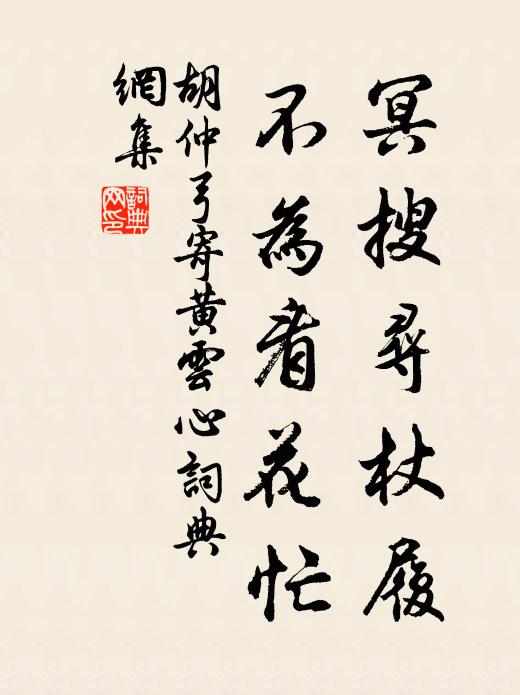 冥搜尋杖履
不為看花忙
胡仲弓寄黃雲心詞典
網集
詞典
网印